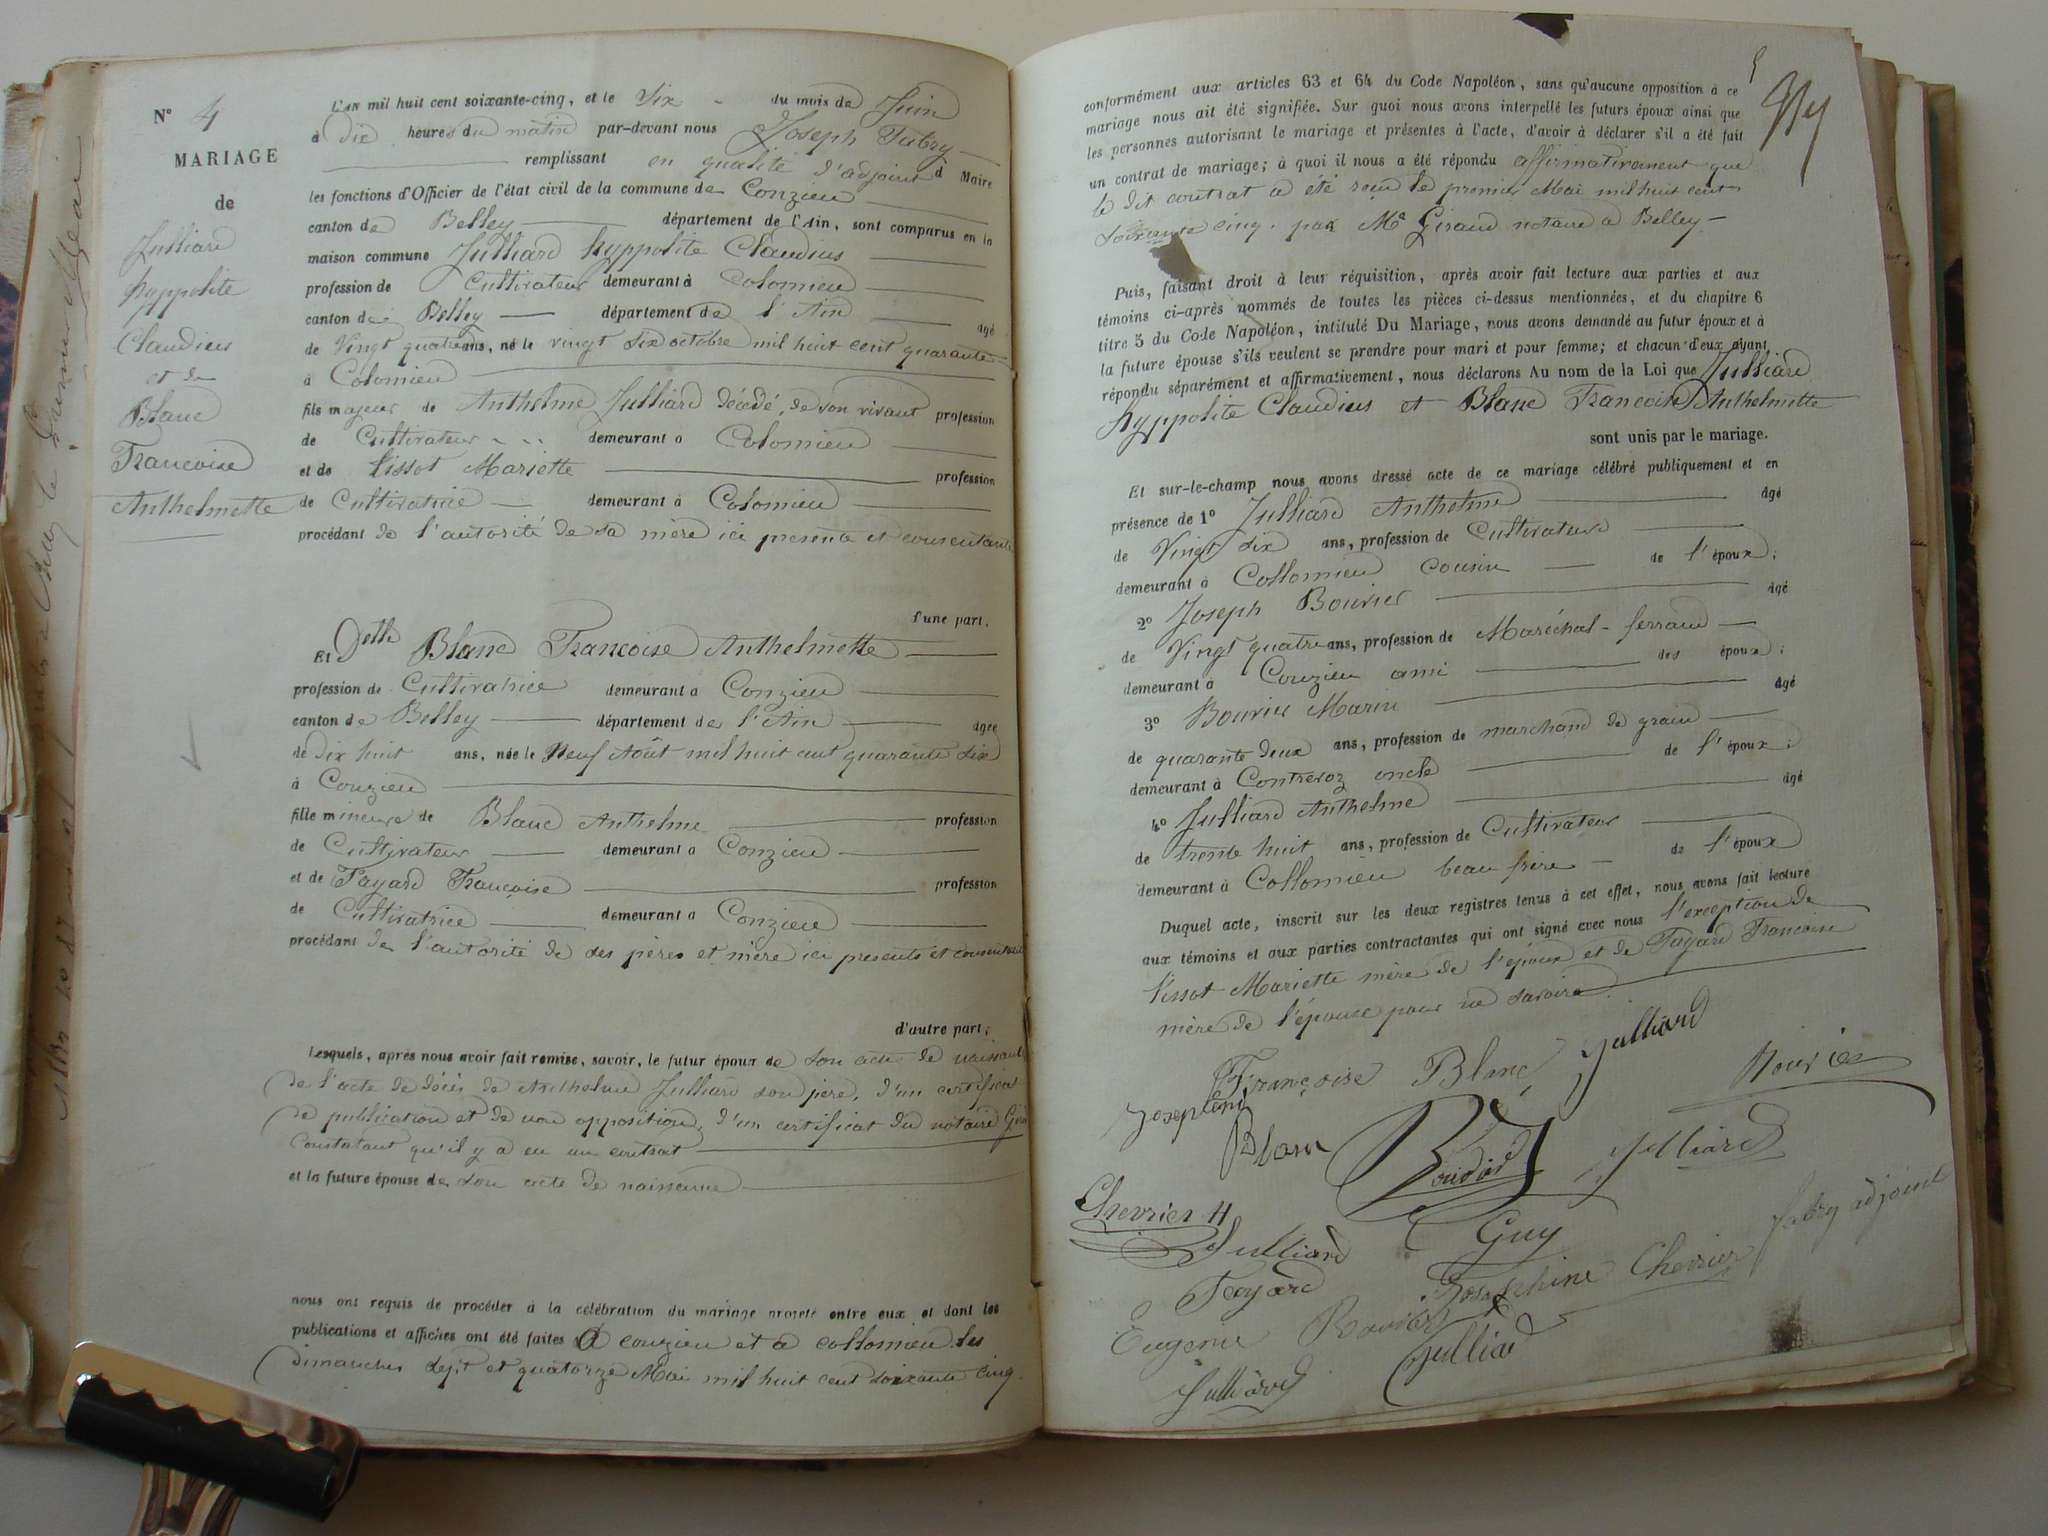 N° 4
MARIAGE
de
Julliard
hyppolite
Claudius
et de
Blanc
Francoise
Anthelmette
L'AN mil huit cent soixante-cinq, et le Six du mois de Juin
à Dix heures du matin par-devant nous Joseph Fabry
remplissant en qualité d'adjoint d Maire
les fonctions d'Officier de l'état civil de la commune de Conzieu
canton de Belley département de l'Ain, sont comparus en la
maison commune Julliard hyppolite Claudius
profession de Cultivateur demeurant à Colomieu
canton de Belley département de l'Ain âgé
de Vingt quatre ans, né le vingt six octobre mil huit cent quarante
à Colomieu
fils majeur de Anthelme Julliard décédé, de son vivant profession
de Cultivateur demeurant à Colomieu
et de Tissot Mariette profession
de Cultivatrice demeurant à Colomieu
procédant de l'autorité de sa mère ici présente et consentante
d'une part.
Et Delle Blanc Francoise Anthelmette
profession de Cultivatrice demeurant à Conzieu
canton de Belley département de l'Ain âgée
de dix huit ans, née le Neuf Août mil huit cent quarante six
à Conzieu
fille mineure de Blanc Anthelme profession
de Cultivateur demeurant à Conzieu
et de Fayard Françoise profession
de Cultivatrice demeurant à Conzieu
procédant de l'autorité de ses pères et mère ici présents et consentants
d'autre part;
Lesquels, après nous avoir fait remise, savoir, le futur époux de son acte de naissance
de l'acte de décès de Anthelme Julliard son père, d'un certificat
de publication et de non opposition, d'un certificat du notaire
Constatant qu'il y a eu un contrat
et la future épouse de son acte de naissance
nous ont requis de procéder à la célébration du mariage projeté entre eux et dont les
publications et affiches ont été faites à conzieu et à collomieu les
dimanches sept et quatorze Mai mil huit cent soixante cinq
conformément aux articles 63 et 64 du Code Napoléon, sans qu'aucune opposition à ce
mariage nous ait été signifiée. Sur quoi nous avons interpellé les futurs époux ainsi que
les personnes autorisant le mariage et présentes à l'acte, d'avoir à déclarer s'il a été fait
un contrat de mariage; à quoi il nous a été répondu affirmativement que
le dit contrat a été recu le premier Mai mil huit cent
soixante cinq, par Me Giraud notaire à Belley
Puis, faisant droit à leur réquisition, après avoir fait lecture aux parties et aux
témoins ci-après nommés de toutes les pièces ci-dessus mentionnées, et du chapitre 6
titre 5 du Code Napoléon, intitulé Du Mariage, nous avons demandé au futur époux et à
la future épouse s'ils veulent se prendre pour mari et pour femme; et chacun d'eux ayant
répondu séparément et affirmativement, nous déclarons Au nom de la Loi que Julliard
hyppolite Claudius et Blanc Francoise Anthelmette
sont unis par le mariage.
Et sur-le-champ nous avons dressé acte de ce mariage célébré publiquement et en
présence de 1° Julliard Anthelme âgé
de Vingt six ans, profession de Cultivateur
demeurant à Collomieu cousin de l'époux;
2° Joseph Bouvier âgé
de Vingt quatre ans, profession de Maréchal-ferrand
demeurant à Conzieu ami des époux;
3° Bouvier Marin âgé
de quarante deux ans, profession de marchand de grain
demeurant à Contrevoz oncle de l'époux;
4° Julliard Anthelme âgé
de trente huit ans, profession de Cultivateur
demeurant à Collomieu beau frère de l'époux
Duquel acte, inscrit sur les deux registres tenus à cet effet, nous avons fait lecture
aux témoins et aux parties contractantes qui ont signé avec nous l'exception de
Tissot Mariette mère de l'époux et de Fayard Francoise
mère de l'épouse pour ne savoir
Françoise Blanc Julliard
Bouvier
Blanc
Julliard
Chevrier H
Julliard
Guy
Fabry adjoint
Fayard
Josephine Chevrier
Eugenie Bouvier
Julliard
Julliard